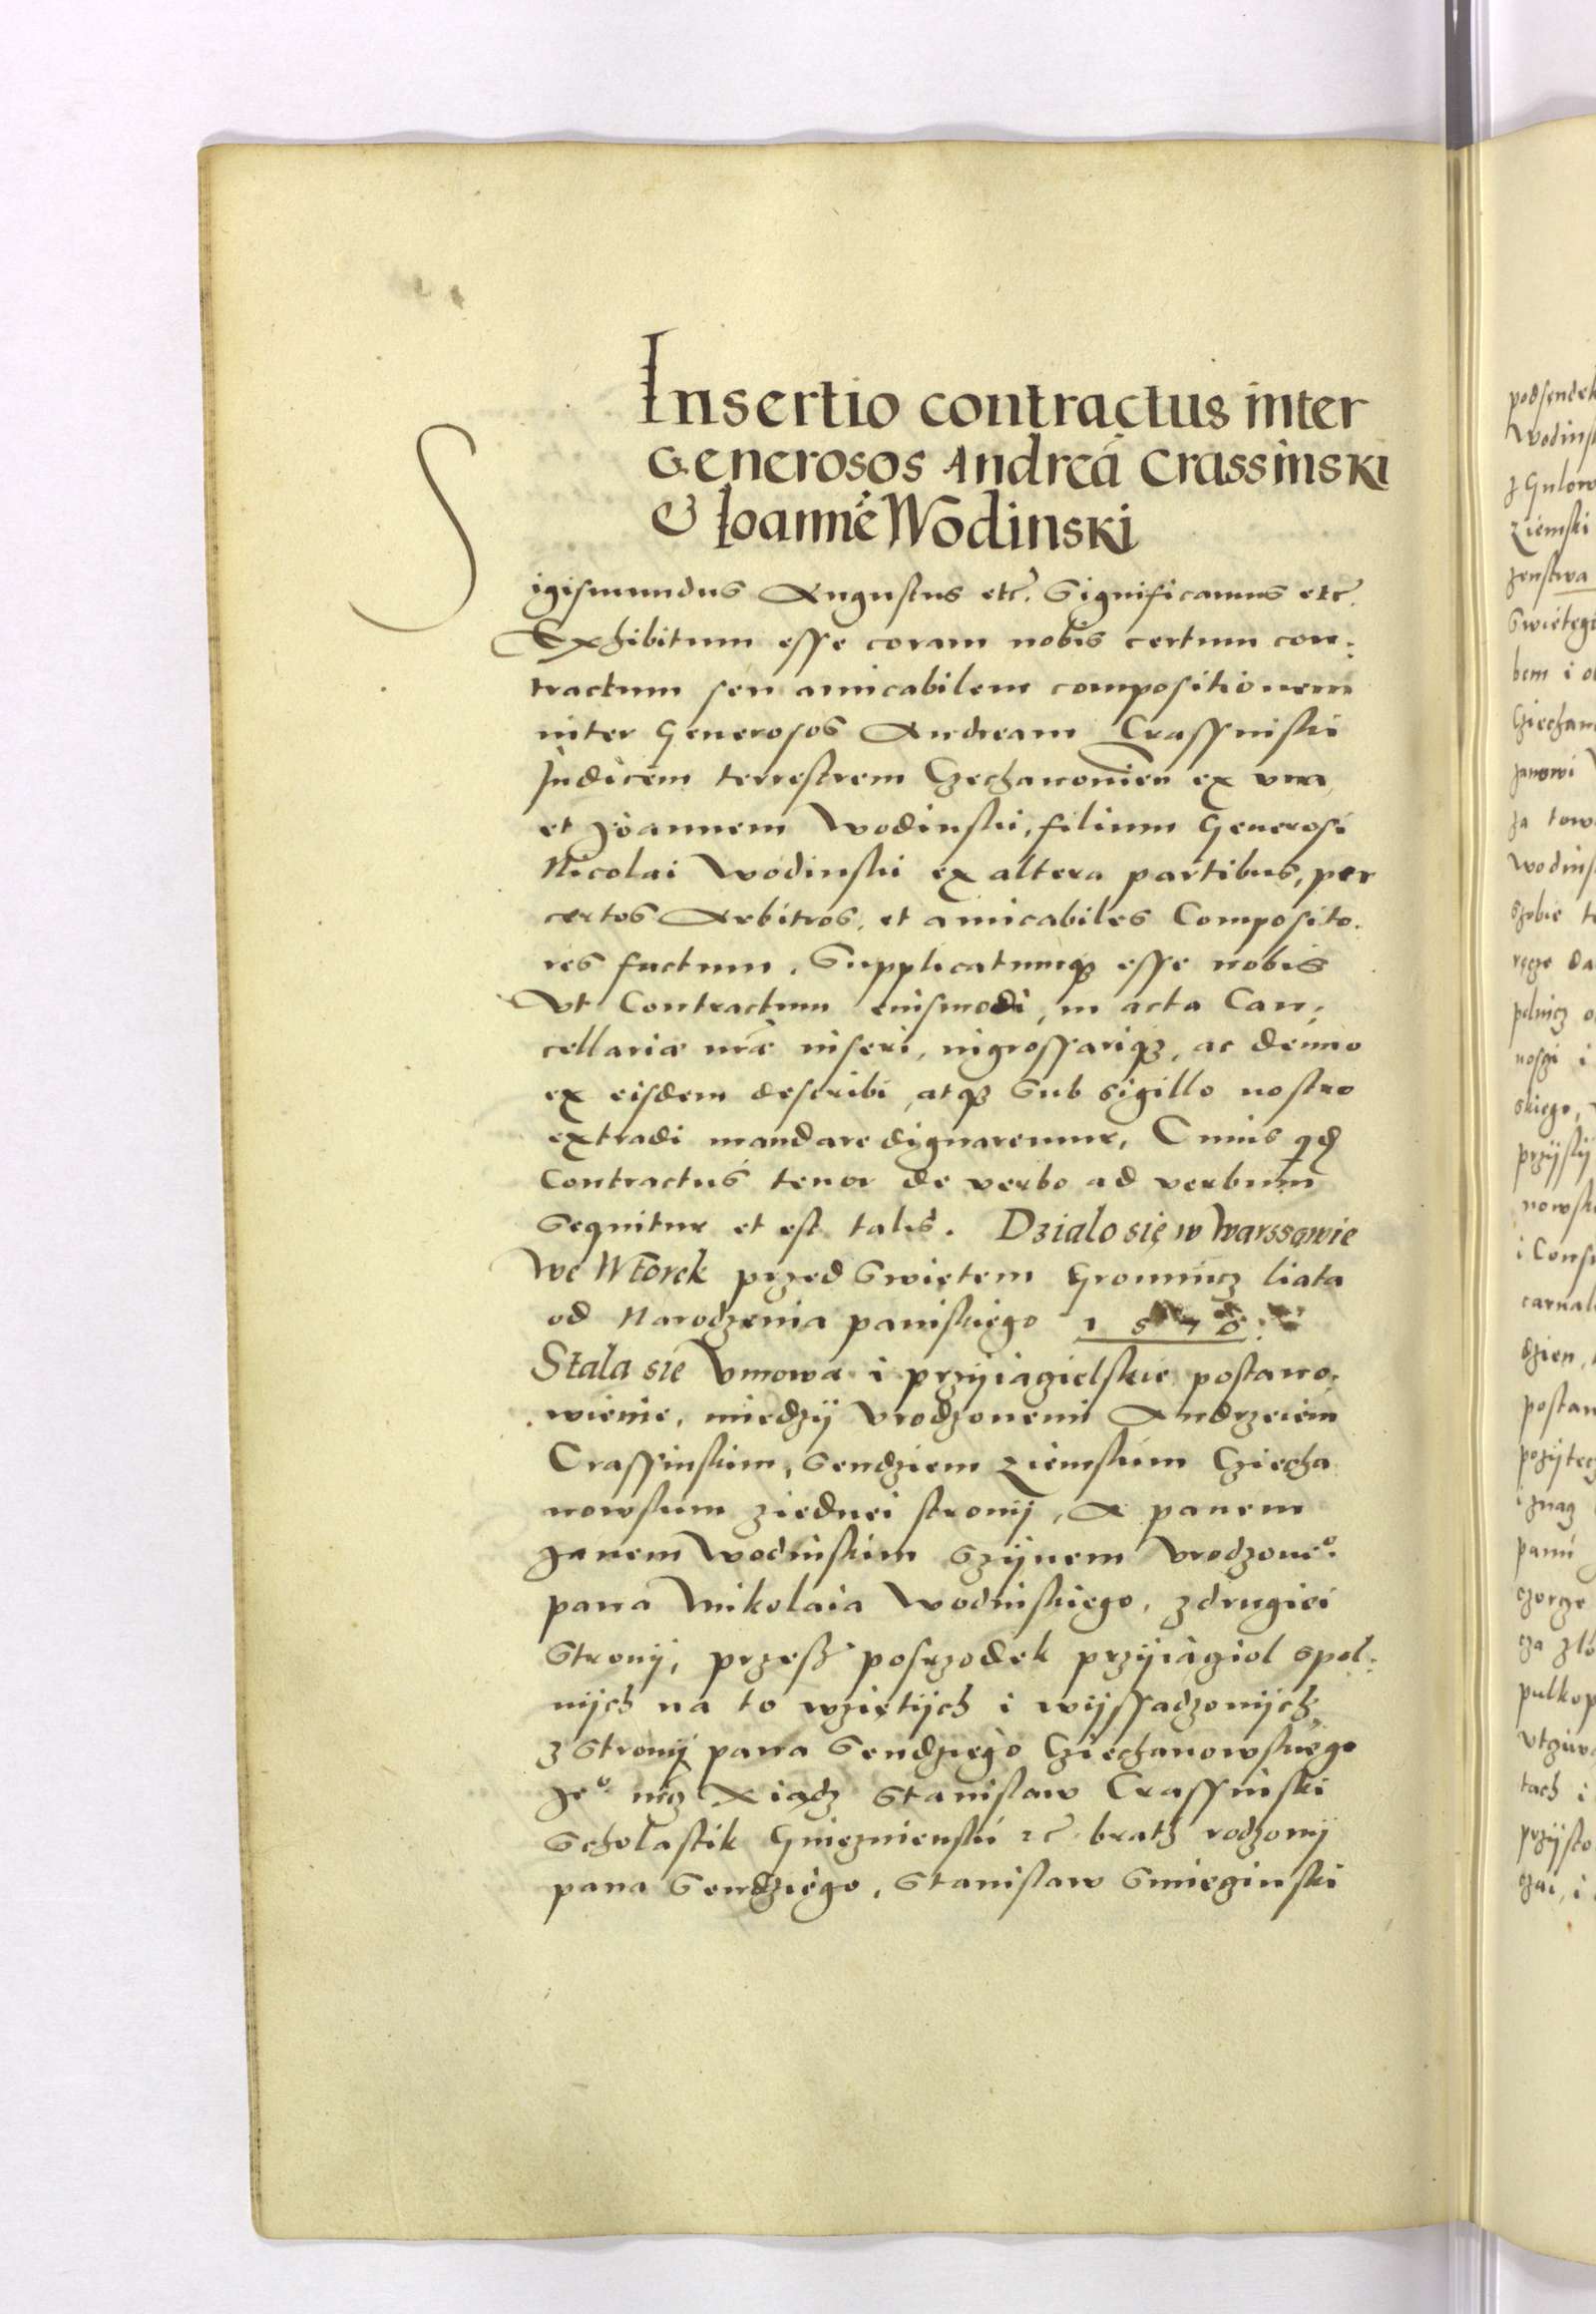 Insertio contractus inter
Generosos Andreā Crassinski
& Ioannē Wodinski
Sigismundus Augustus etc. Significamus etc.
Exhibitum esse coram nobis certum con:
tractum seu amicabilem compositionem
inter Generosos Andream Crassinski
Judicem terrestrem Czechanonien ex vna
et Joannem Wodinski, filium Generosi
Nicolai Wodinski ex altera partibus, per
certos Arbitros, et amicabiles Composito:
res factum. Supplicatumqz esse nobis
Vt Contractum eiusmodi, in acta Can:
cellariæ nræ inseri, ingrossariqz, ac denuo
ex eisdem describi, atqz sub sigillo nostro
extradi mandare dignaremur, Cuius qd
Contractus tenor de verbo ad verbum
sequitur et est talis. Dzialo się w Warssawie
We Wtorek przed Swiętem Gromnicz liata
od Narodzenia paniskiego 1570:
Stala sie Vmowa i przyiazielskie postano:
wienie, miedzÿ Vrodzonemi Andrzeiem
Crassinskim, Sendziem Ziemskim Cziecha
nowskim ziednei stronÿ, A panem
Janem Wodinskim Szÿnem Vrodzoneº.
pana Mikolaia Wodinskiego, zdrugiei
Stronÿ, przesz posrzodek przÿiaziol spol:
nÿch na to wziętÿch i wÿssadzonÿch
z Stronÿ pana Sendziego Cziechanowskiego
Jeº mcz Xiądz Stanislaw Crassinski
Scholastik Gnieznienski etc. brath rodzonÿ
pana Sendziego, Stanislaw
podsendek
Wodinsk
z Gulow
Ziemski
Swietego
bem i
Cziechan
Janowi
za tow
wodins
skiego,
przÿsly
nowsk
i Cons
carnal
dzien,
postan
pozÿtec
i znaz
panu
tach i
przÿsto